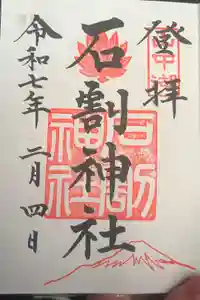 登拝
石割神社
令和七年 二月 四日
石割
神社